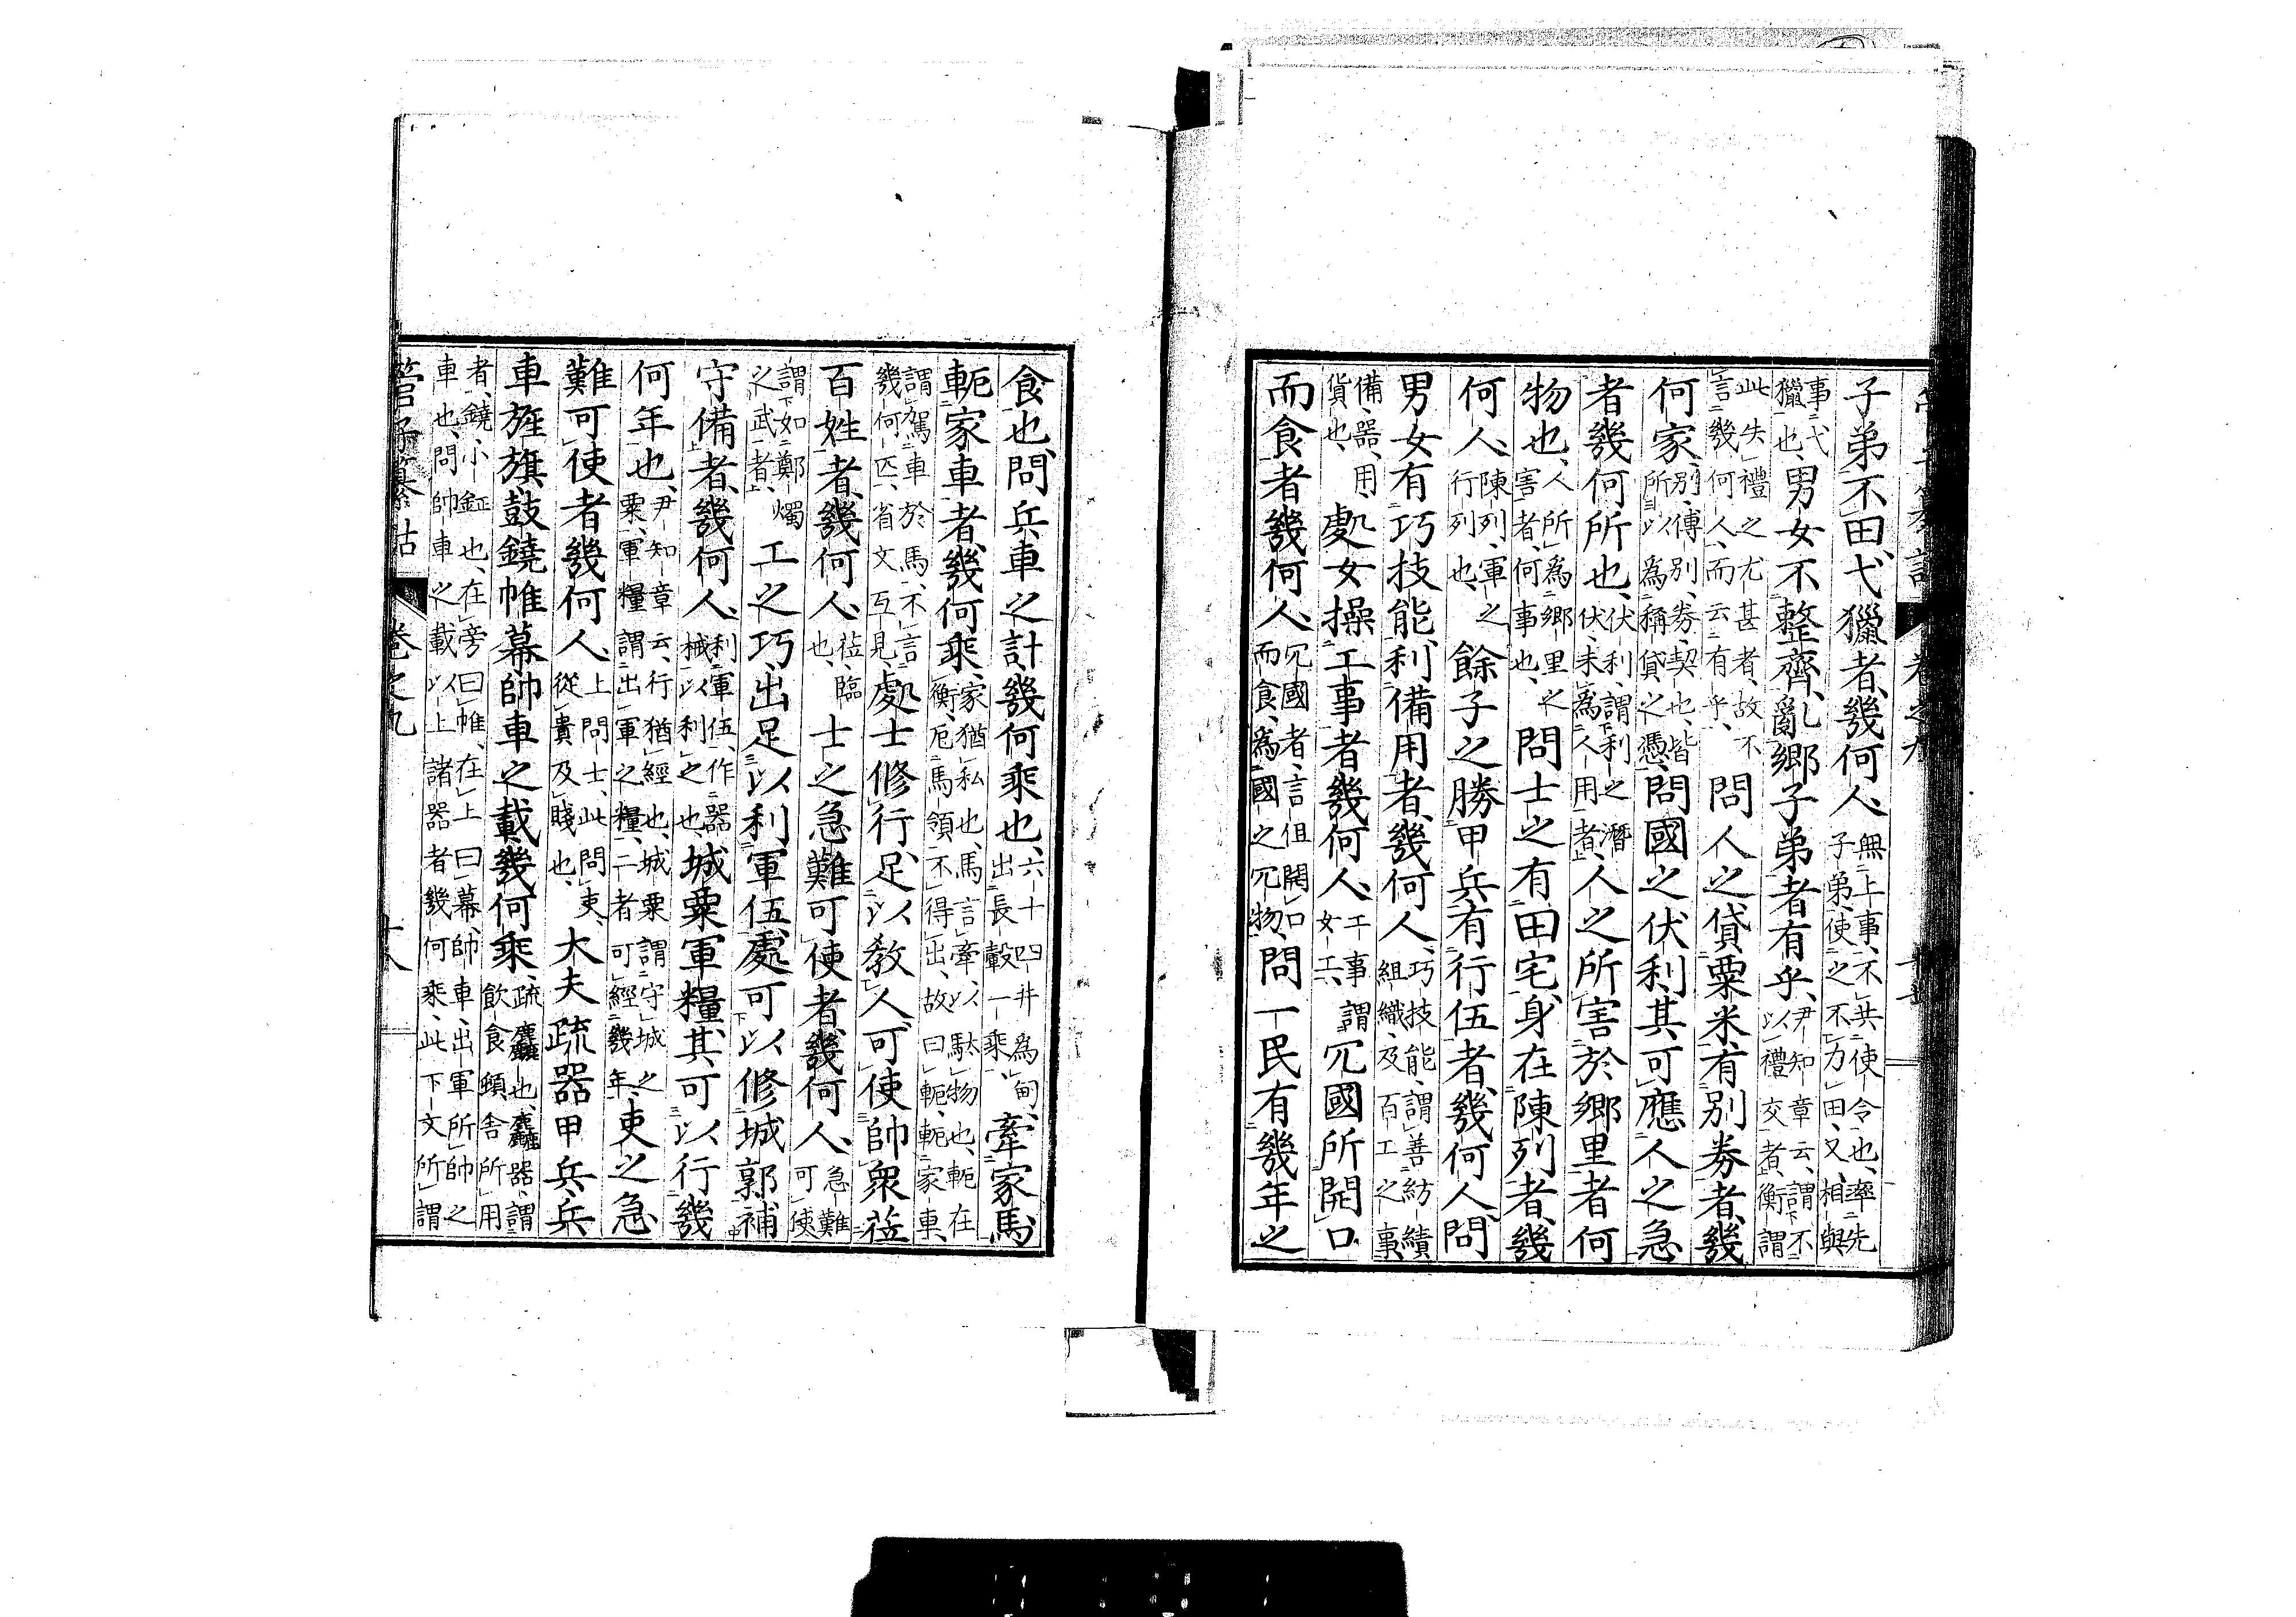 子弟不田弋獵者幾何人、無上事、不共使令也、率先子弟、使之不力田、又相與
事弋獵也、男女不整齊、亂鄉子弟者有乎、尹知章云、謂不以禮交者、衡謂
此失禮之尤甚者、故不言幾何人、而云有乎、問人之貸粟米、有別券者、幾
何家、別、傅別、券、契也、皆所以為稱貸之憑、問國之伏利、其可應人之急
者幾何所也、伏利、謂利之潛伏、未為人用者、人之所害於鄉里者何
物也、人所為鄉里之害者、何事也、問士之有田宅、身在陳列者、幾
何人、陳列、軍之行列也、餘子之勝甲兵、有行伍者、幾何人、問
男女有巧技能、利備用者、幾何人、巧技能、謂善紡績組織、及百工之事、
備、器、用、貨也、處女操工事者幾何人、工事謂女工、冗國所開口
而食者幾何人、冗國者、言但開口而食、為國之冗物、問一民有幾年之
食也、問兵車之計幾何乘也、六十四井為甸、出長轂一乘、牽家馬、
軛家車者、幾何乘、家猶私也、馬言牽、以駄物也、軛在衡、戹馬領、不得出、故曰軛、軛家車、
謂駕車於馬、不言幾何匹、省文互見、處士修行、足以教人、可使帥衆蒞
百姓者、幾何人、蒞、臨也、士之急難可使者、幾何人、急難可使
謂如鄭燭之武者、工之巧、出足以利軍伍、處可以修城郭補
守備者、幾何人、利軍伍、作器械以利之也、城粟軍糧、其可以行幾
何年也、尹知章云、行猶經也、城粟謂守城之粟、軍糧謂出軍之糧、二者可經幾年、吏之急
難可使者幾何人、上問士、此問吏、從貴及賤也、大夫疏器甲兵、兵
車旌旗鼓鐃帷幕帥車之載幾何乘、疏、麤也、麤器、謂飲食頓舍所用
者、鐃、小鉦也、在旁曰帷、在上曰幕、帥車、出軍所帥之車也、問帥車之載以上諸器者幾何乘、此下文所謂
管子纂詁 卷之九 十八